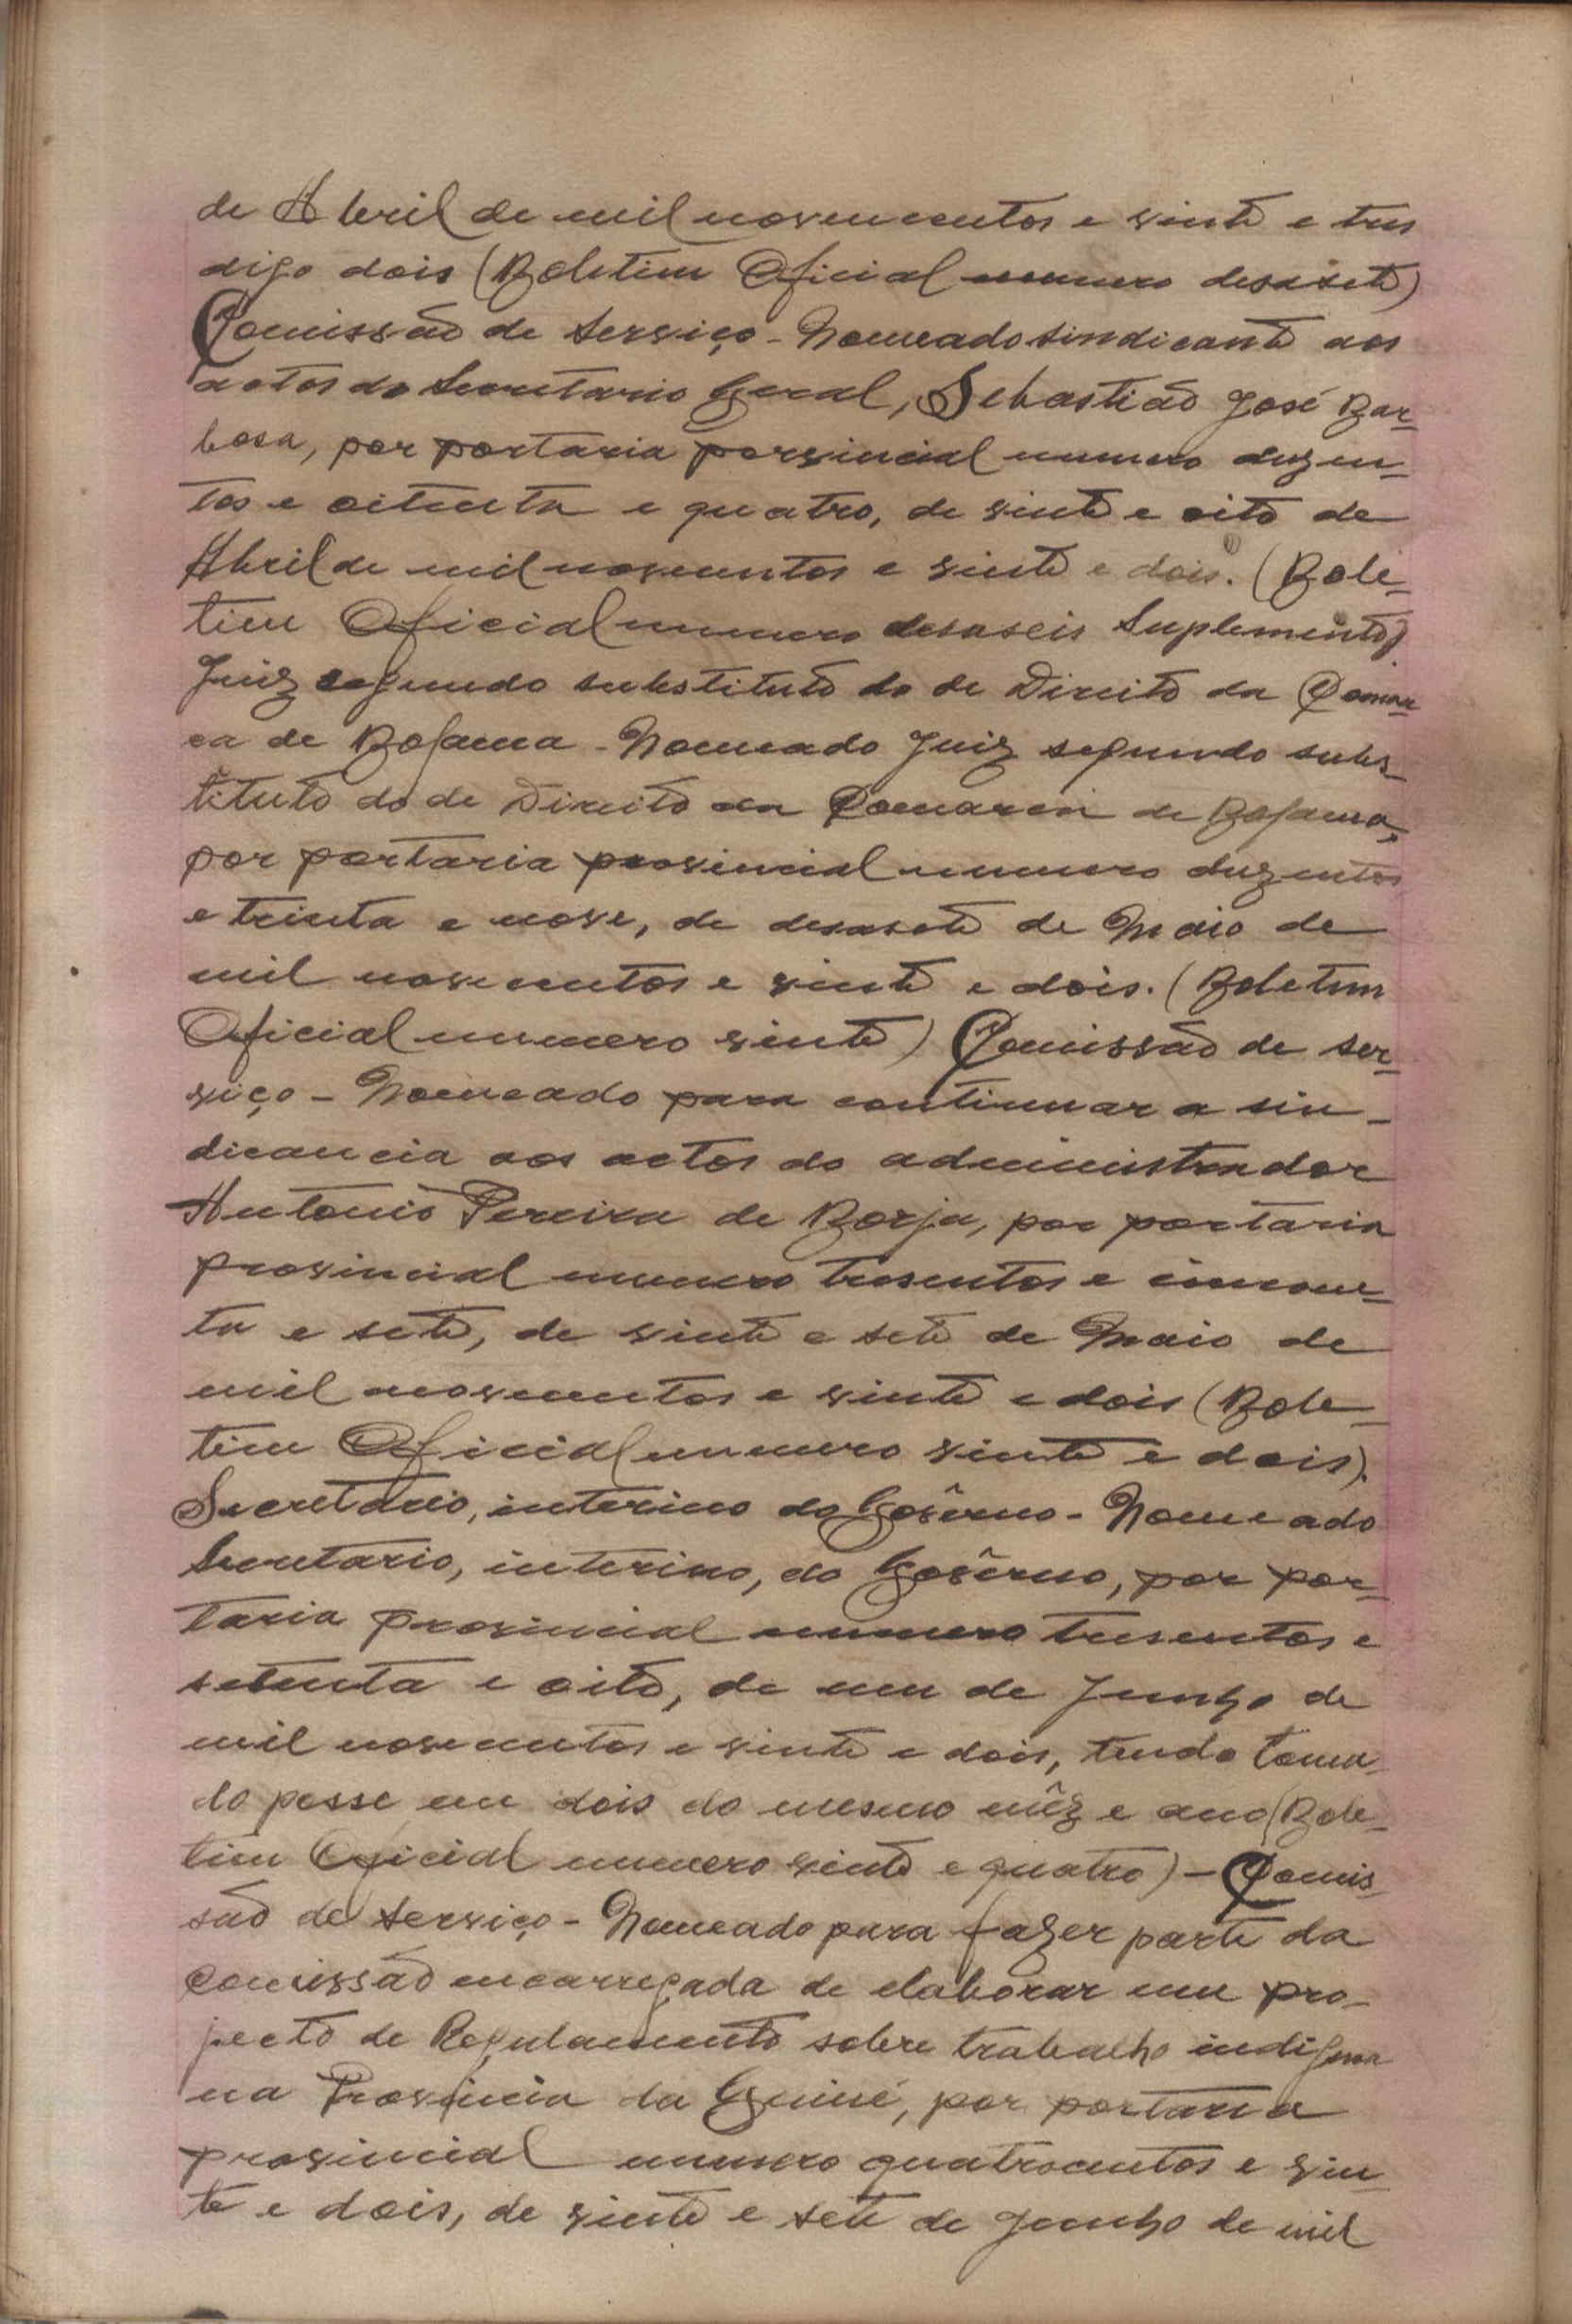 de Abril de mil novecentos e vinte e tres
digo dois (Boletim Oficial numero desasete)
Comissão de serviço - Nomeado sindicante aos
actos do Secretario Geral, Sebastião José Bar-
bosa, por portaria porvincial numero duzen-
tos e oitenta e quatro, de vinte e oito de
Abril de mil novecentos e vinte e dois. (Bole-
tim Oficial numero desaseis Suplemento)
Juiz segundo substituto do de Direito da Comar-
ca de Bolama - Nomeado Juiz segundo subs-
tituto do de Direito da Comarca de Bolama,
por portaria provincial numero duzentos
e trinta e nove, de desasete de Maio de
mil novecentos e vinte e dois. (Boletim
Oficial numero vinte) Comissão de ser-
viço - Nomeado para continuar a sin-
dicancia aos actos do administrador
Antonio Pereira de Borja, por portaria
provincial numero tresentos e cincoen-
ta e sete, de vinte e sete de Maio de
mil novecentos e vinte e dois (Bole-
tim Oficial numero vinte e dois).
Secretario, interino do Govêrno - Nomeado
Secretario, interino, do Govêrno, por por-
taria provincial numero tresentos e
setenta e oito, de um de Junho de
mil novecentos e vinte e dois, tendo toma-
do posse em dois do mesmo mêz e ano (Bole-
tim Oficial numero vinte e quatro) - Comis-
são de serviço - Nomeado para fazer parte da
comissão encarregada de elaborar um pro-
jecto de Regulamento sobre trabalho indigena
na Provincia da Guiné, por portaria
provincial numero quatrocentos e vin-
te e dois, de vinte e sete de Junho de mil